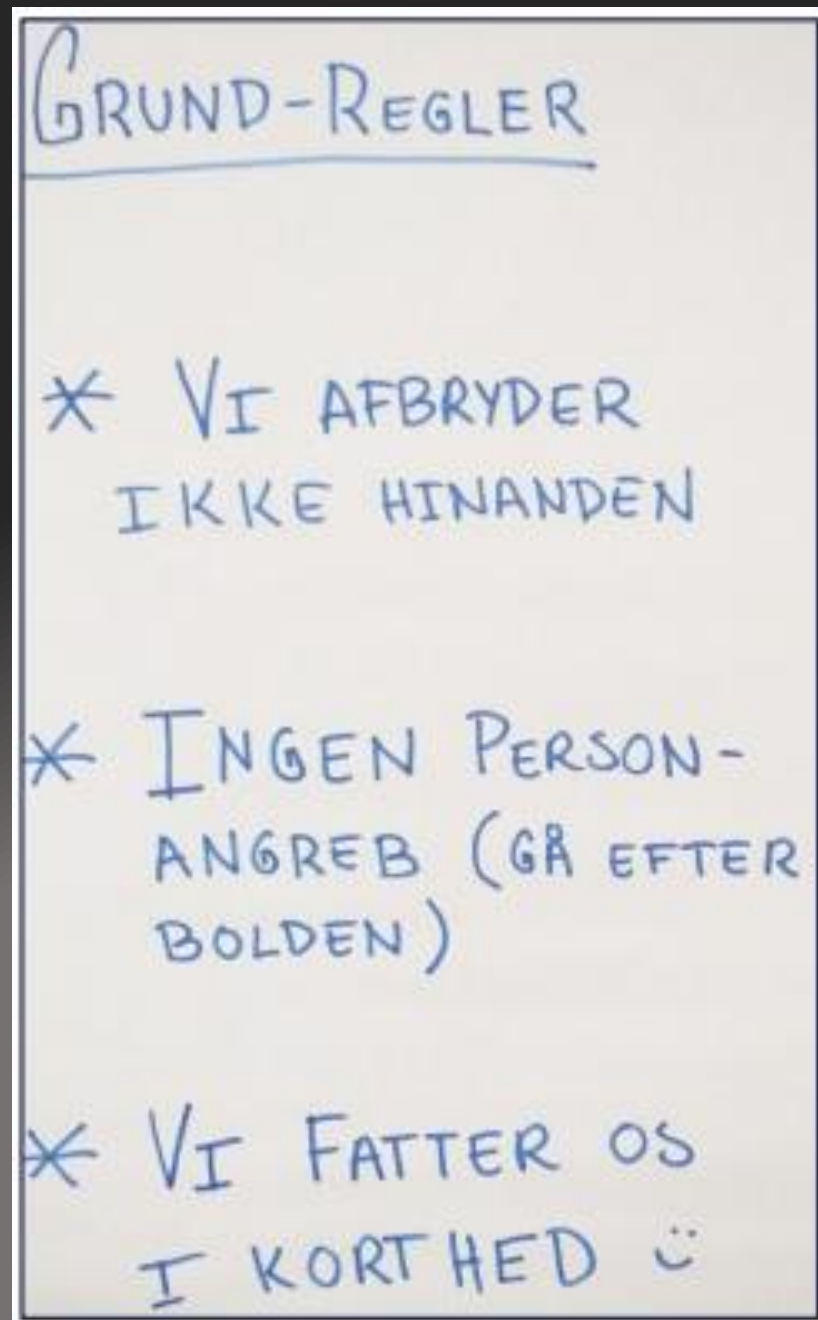 GRUND-REGLER
* VI AFBRYDER
IKKE HINANDEN
* INGEN PERSON-
ANGREB (GÅ EFTER
BOLDEN)
* VI FATTER OS
I KORTHED :)